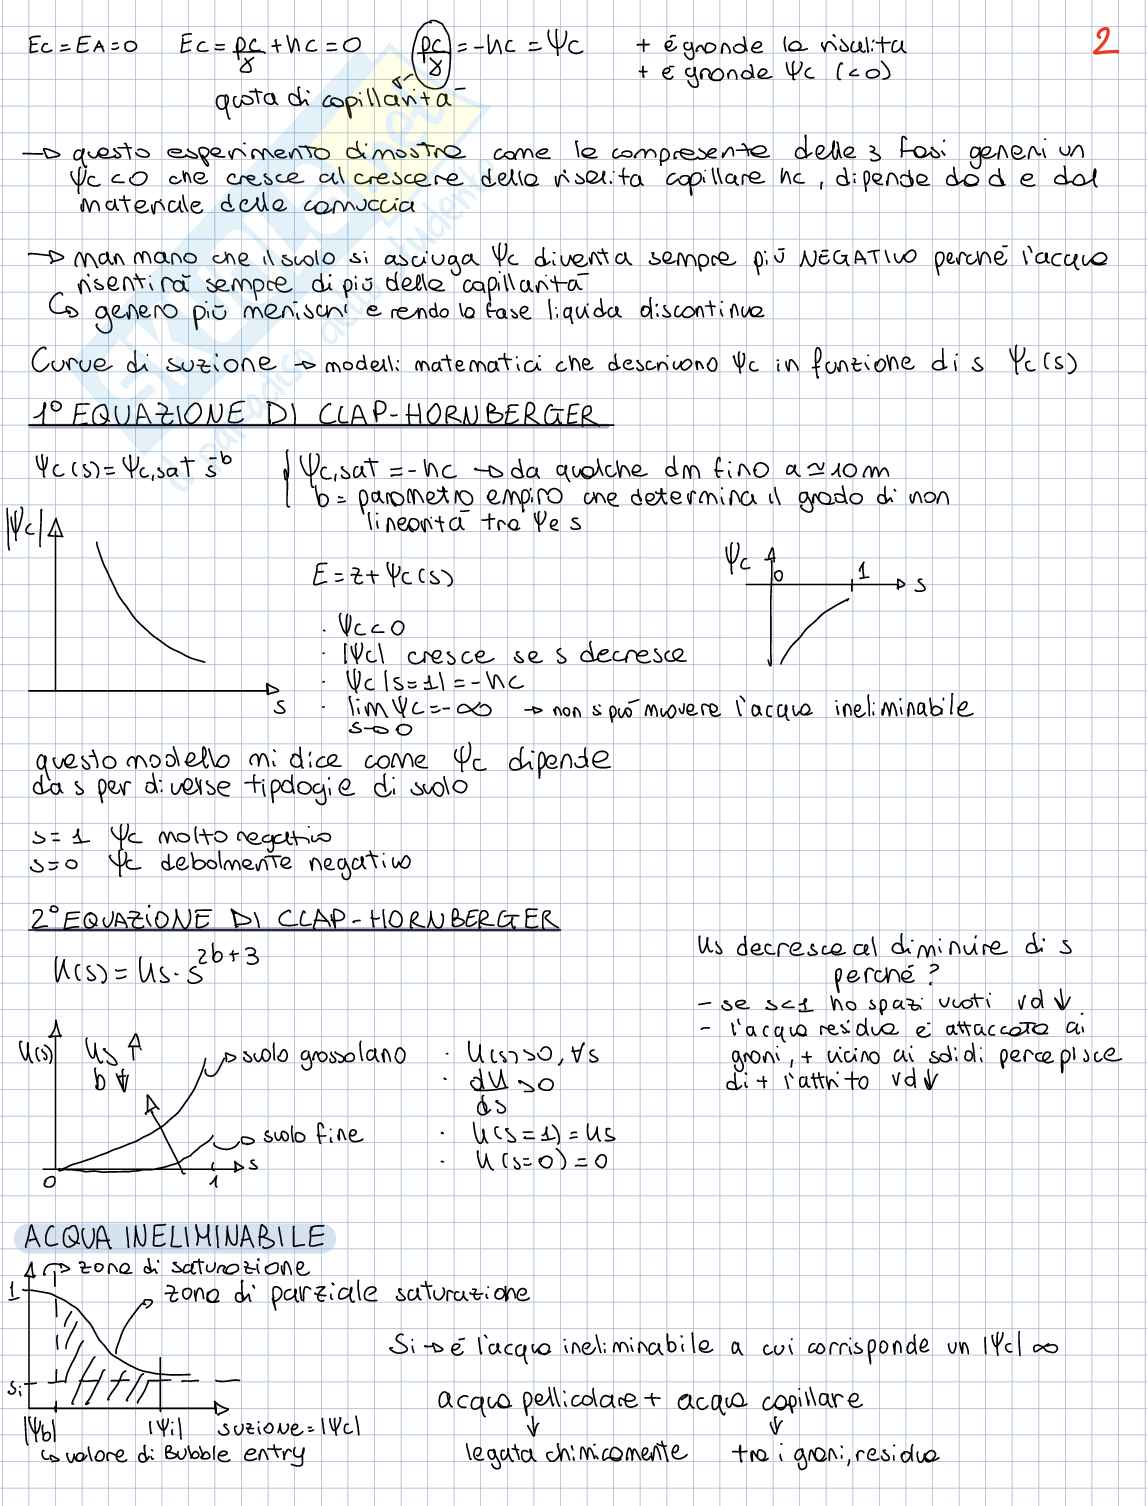 2
Ec = EA = 0   Ec = pc/γ + hc = 0   pc/γ = -hc = Ψc   + è grande la risalita
+ è grande Ψc (<0)
quota di capillarità
→ questo esperimento dimostra come la compresente delle 3 fasi generi un
Ψc < 0 che cresce al crescere della risalita capillare hc, dipende da d e dal
materiale della cannuccia
→ man mano che il suolo si asciuga Ψc diventa sempre più NEGATIVO perché l'acqua
risentirà sempre di più della capillarità
↳ genero più menischi e rendo la fase liquida discontinua
Curve di suzione → modelli matematici che descrivono Ψc in funzione di s Ψc(s)
1° EQUAZIONE DI CLAP-HORNBERGER
Ψc(s) = Ψc,sat s^-b   Ψc,sat = -hc → da qualche dm fino a ≃ 10 m
b = parametro empiro che determina il grado di non
linearità tra Ψ e s
|Ψc|
s
E = z + Ψc(s)
Ψc
0
1
s
· Ψc < 0
· |Ψc| cresce se s decresce
· Ψc |s=1| = -hc
· lim Ψc = -∞ → non si può muovere l'acqua ineliminabile
s→0
questo modello mi dice come Ψc dipende
da s per diverse tipologie di suolo
s = 1 Ψc molto negativo
s = 0 Ψc debolmente negativo
2° EQUAZIONE DI CLAP-HORNBERGER
K(s) = Ks · s^2b+3
Ks decresce al diminuire di s
perché?
- se s<1 ho spazi vuoti vd ↓
- l'acqua residua è attaccata ai
grani, + vicino ai solidi percepisce
di + l'attrito vd ↓
K(s)
Ks ↑
b ↓
suolo grossolano
suolo fine
0
1
s
· K(s)>0, ∀s
· dK/ds > 0
· K(s=1) = Ks
· K(s=0) = 0
ACQUA INELIMINABILE
zona di saturazione
zona di parziale saturazione
1
si
|Ψb|
|Ψi|
suzione = |Ψc|
↳ valore di Bubble entry
Si → è l'acqua ineliminabile a cui corrisponde un |Ψc| ∞
acqua pellicolare + acqua capillare
↓ ↓
legata chimicamente   tra i grani, residua